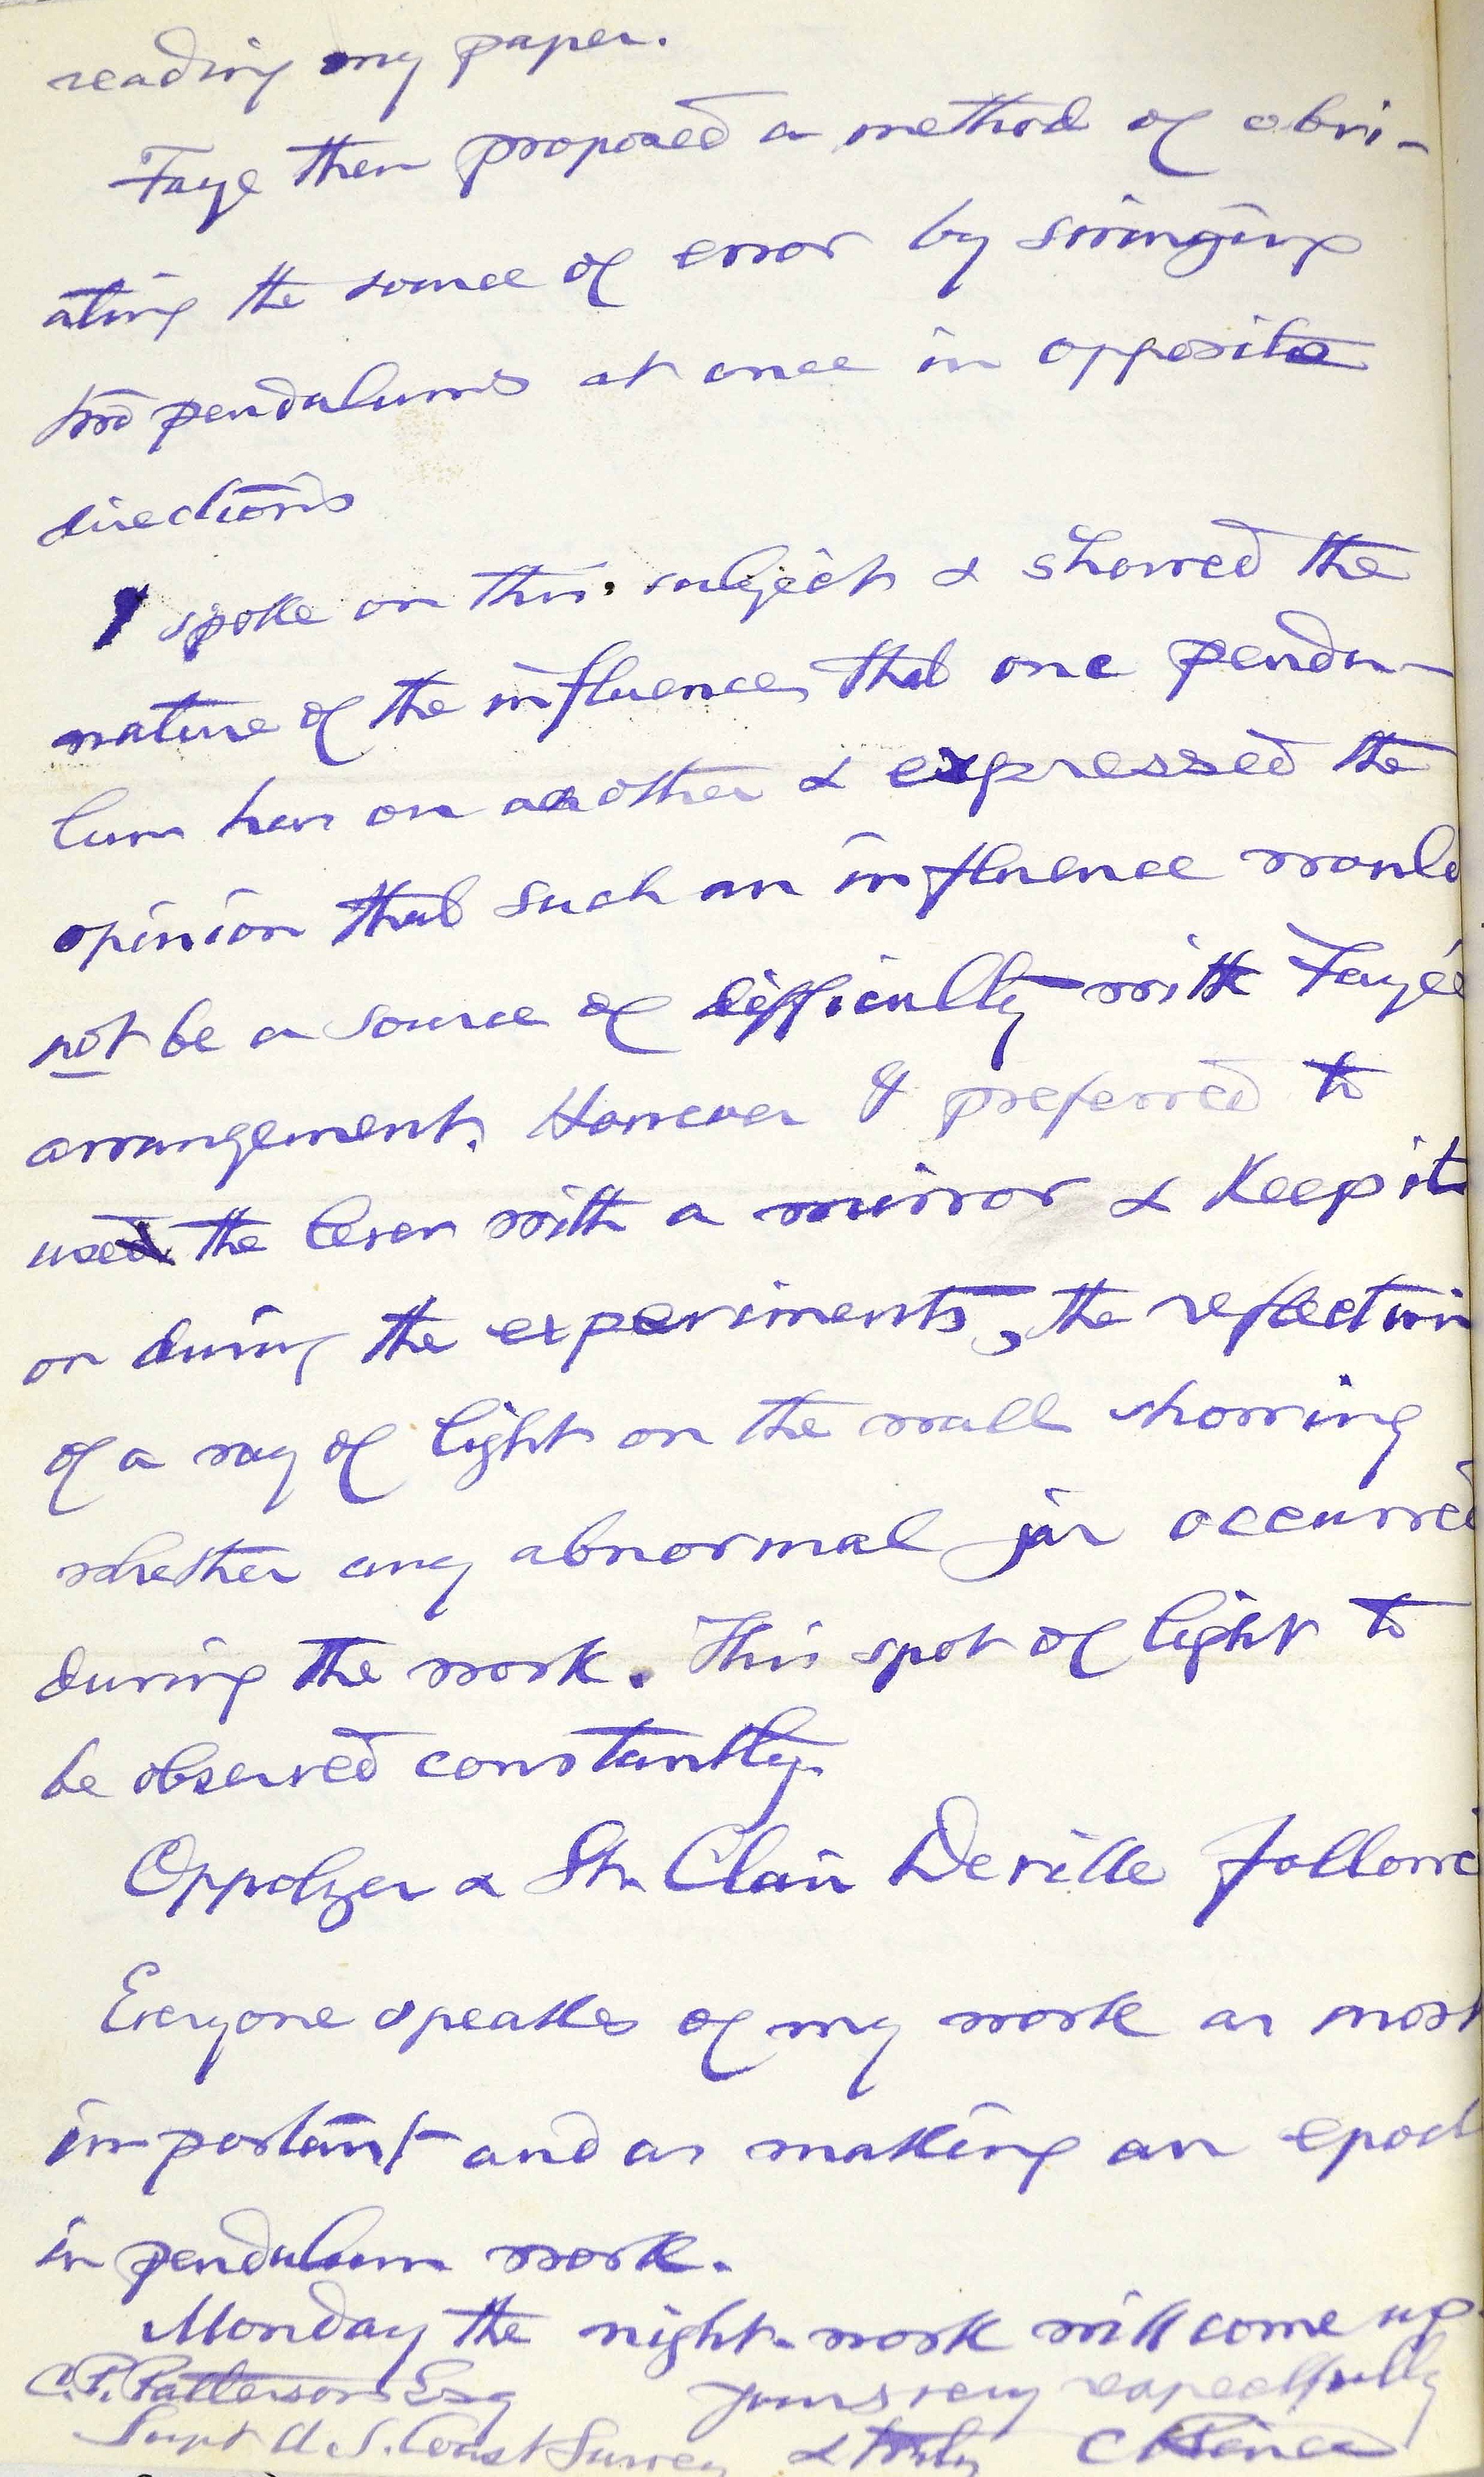 reading my paper.
Faye then proposed a method of obvi-
ating the source of error by swinging
two pendulums at once in opposite
directions
I spoke on this subject & showed the
nature of the influence that one pendu-
lum has on another & expressed the
opinion that such an influence would
not be a source of difficulty with Faye's
arrangement. However I preferred to
use the lever with a mirror & keep it
on during the experiments, the reflection
of a ray of light on the wall showing
whether any abnormal jar occurred
during the work. This spot of light to
be observed constantly.
Oppolzer & St. Clair Deville followed
Everyone speakes of my work as most
important and as making an epoch
in pendulum work.
Monday the night-work will come up.
C.P. Patterson Esq yours very respectfully
Supt U.S. Coast Survey & truly C S Peirce